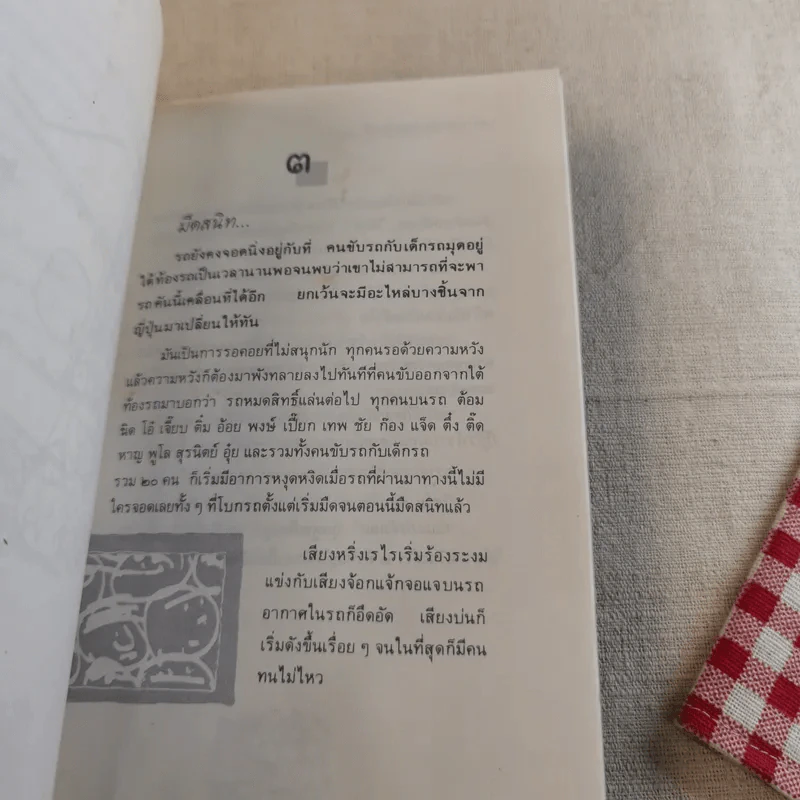 ๓
มืดสนิท...
รถยังคงจอดนิ่งอยู่กับที่ คนขับรถกับเด็กรถมุดอยู่
ใต้ท้องรถเป็นเวลานานพอจนพบว่าเขาไม่สามารถที่จะพา
รถคันนี้เคลื่อนที่ได้อีก ยกเว้นจะมีอะไหล่บางชิ้นจาก
ญี่ปุ่นมาเปลี่ยนให้ทัน
มันเป็นการรอคอยที่ไม่สนุกนัก ทุกคนรอด้วยความหวัง
แล้วความหวังก็ต้องมาพังทลายลงไปทันทีที่คนขับออกจากใต้
ท้องรถมาบอกว่า รถหมดสิทธิ์แล่นต่อไป ทุกคนบนรถ ต้อม
นิด โอ๋ เจี๊ยบ ติ๋ม อ้อย พงษ์ เปี๊ยก เทพ ชัย ก๊อง แจ็ด ตึ๋ง ติ๊ด
หาญ พูโล สุรนิตย์ อุ๋ย และรวมทั้งคนขับรถกับเด็กรถ
รวม ๒๐ คน ก็เริ่มมีอาการหงุดหงิดเมื่อรถที่ผ่านมาทางนี้ไม่มี
ใครจอดเลยทั้ง ๆ ที่โบกรถตั้งแต่เริ่มมืดจนตอนนี้มืดสนิทแล้ว
เสียงหริ่งเรไรเริ่มร้องระงม
แข่งกับเสียงจ้อกแจ้กจอแจบนรถ
อากาศในรถก็อึดอัด เสียงบ่นก็
เริ่มดังขึ้นเรื่อย ๆ จนในที่สุดก็มีคน
ทนไม่ไหว